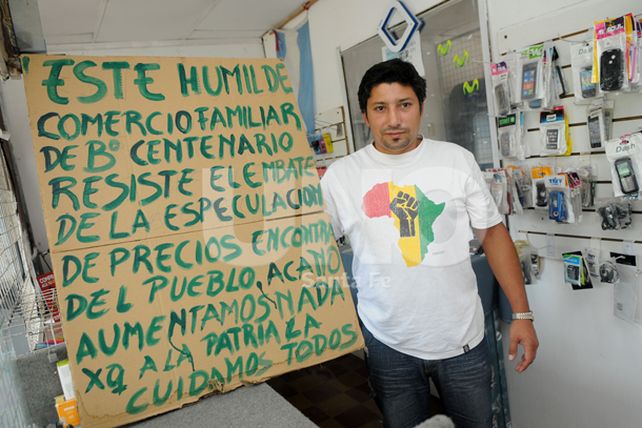 ESTE HUMILDE
COMERCIO FAMILIAR
DE Bº CENTENARIO
RESISTE EL EMBATE
DE LA ESPECULACION
DE PRECIOS ENCONTRA
DEL PUEBLO, ACA NO
AUMENTAMOS NADA
XQ A LA PATRIA LA
CUIDAMOS TODOS
UNO
Santa Fe